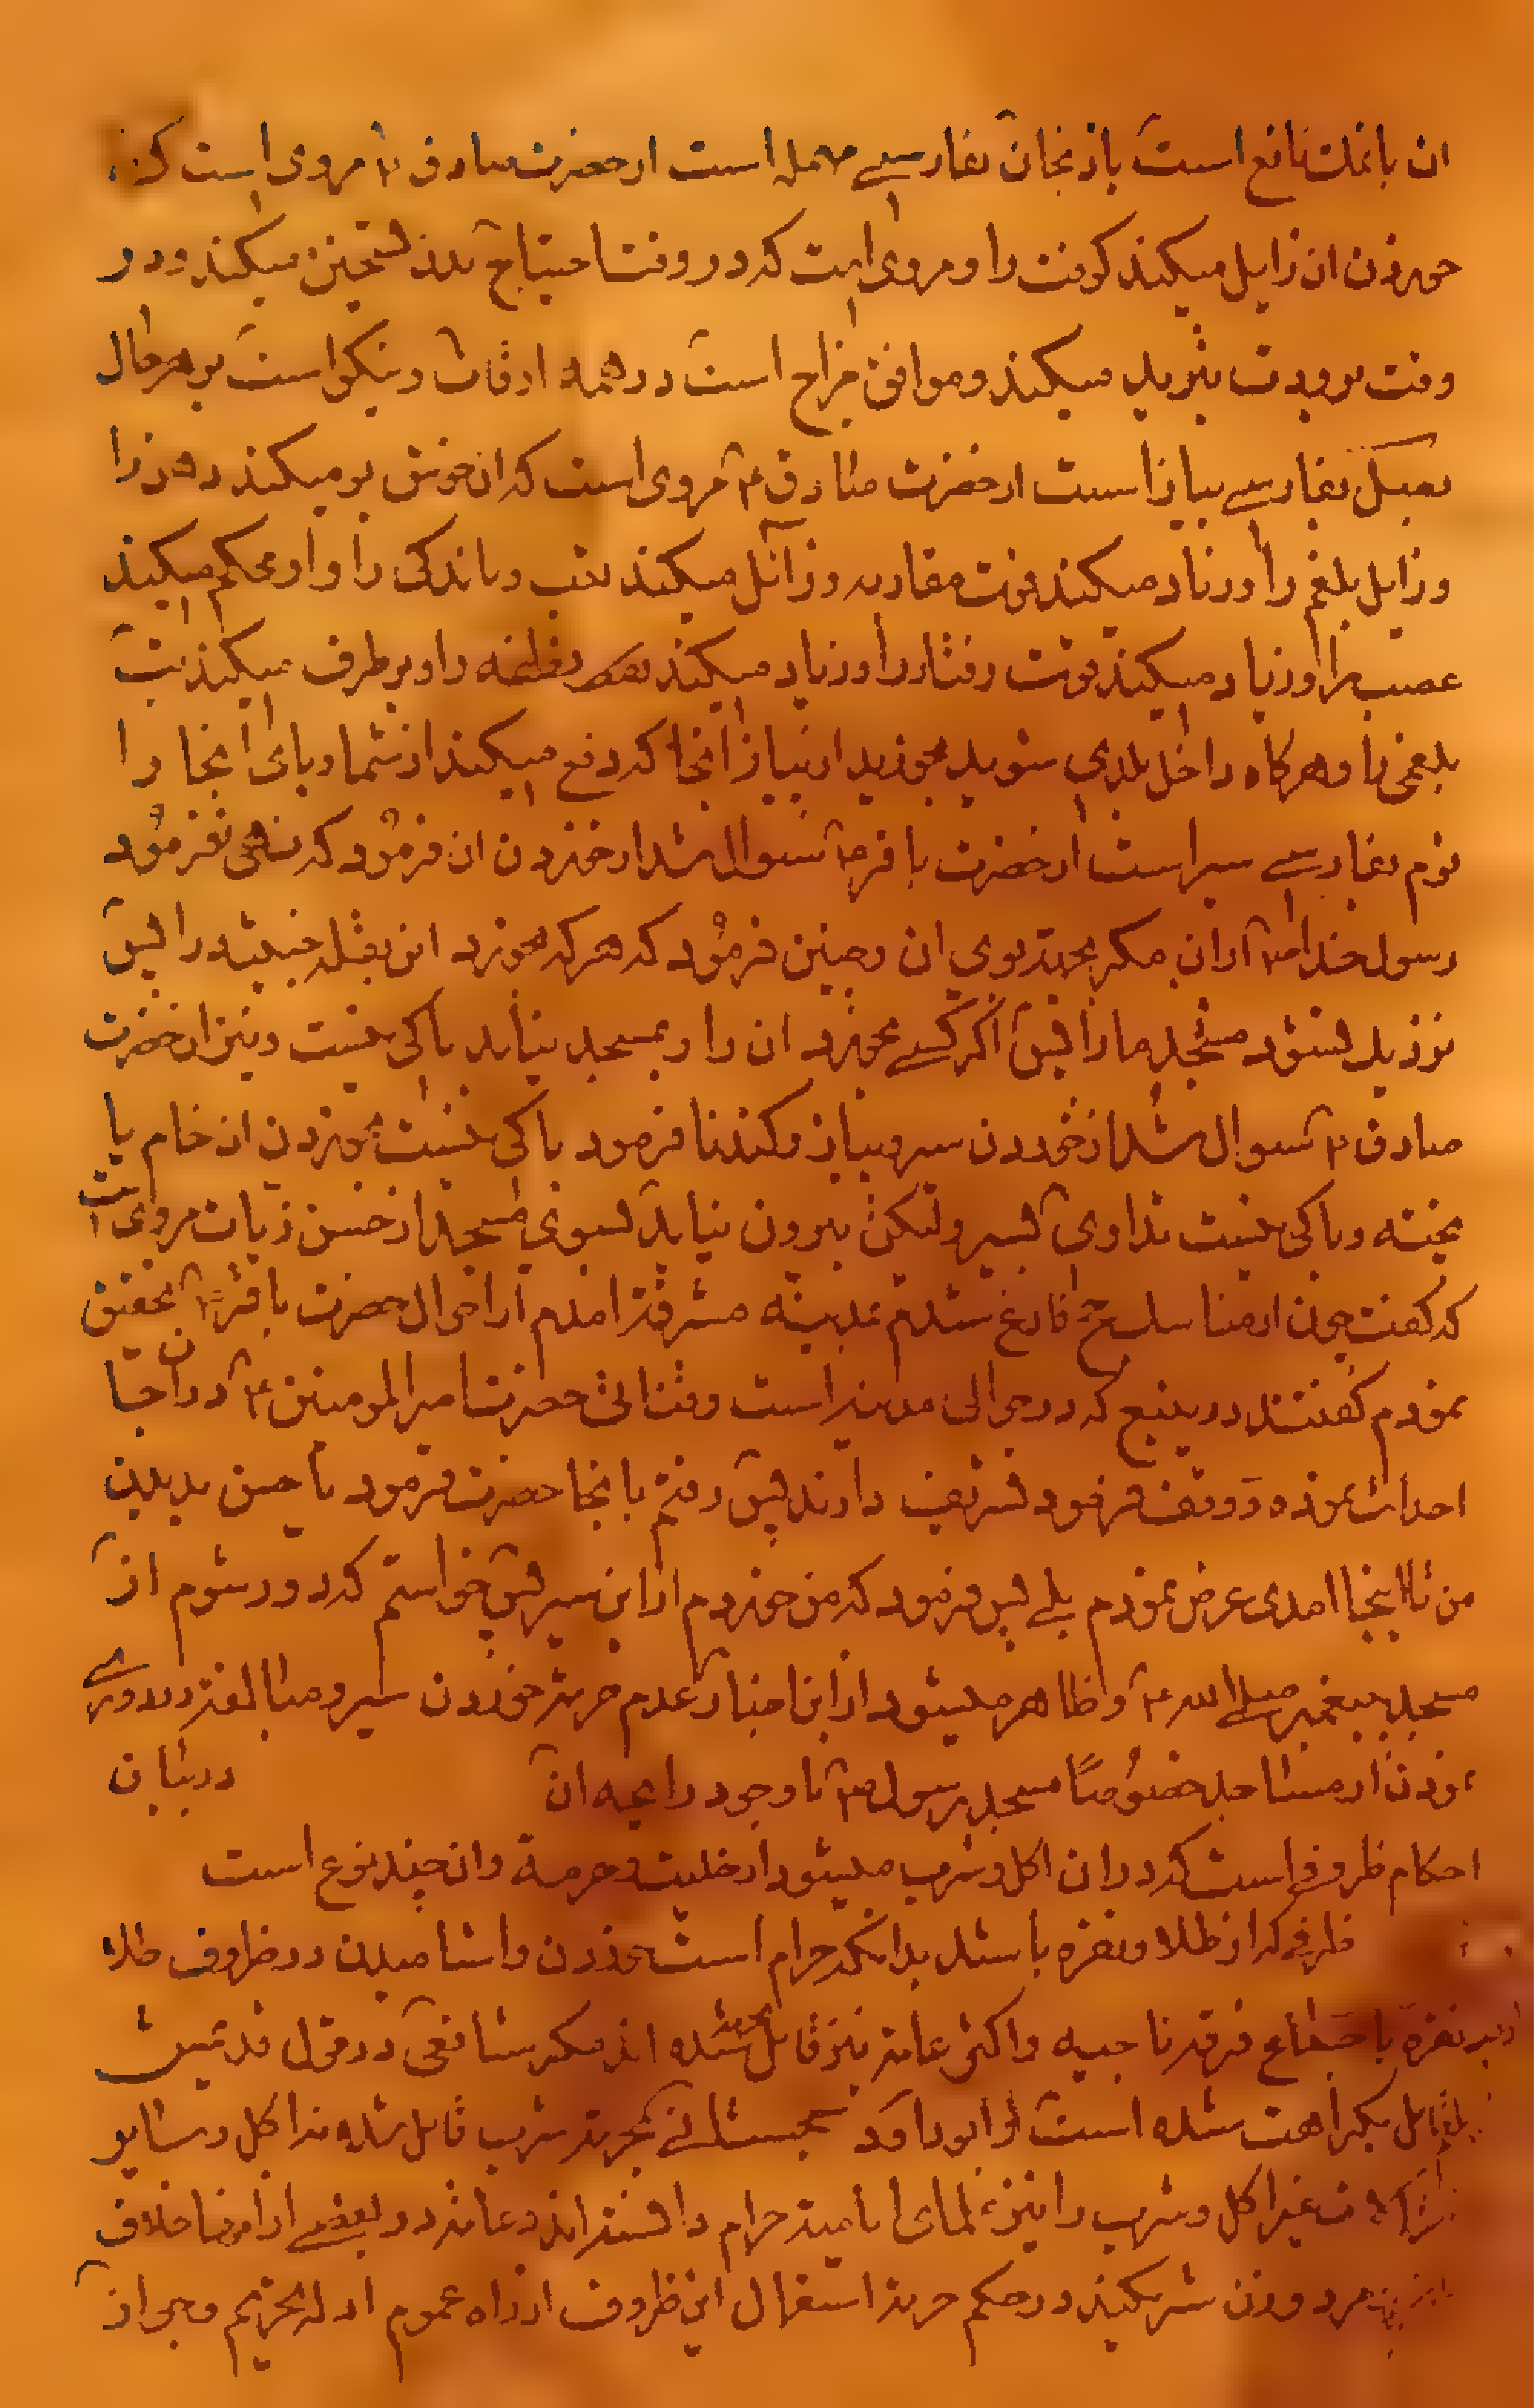 ان بانمك نافع است باذنجان بفارسے مهمله است از حضرت صادق ۴ مروی است كه
خوردن ان زایل میكند كوفت را و مروی است كه در وقت احتیاج بدن تسخین میكند و در
وقت برودت تبرید میكند و موافق مزاج است در همه اوقات و نیكو است بر هر حال
بصل بفارسے پیاز است از حضرت صادق ۴ مروی است كه ان خوش بو میكند دهن را
و زایل بلغم را و زیاد میكند قوت مقاربه و زائل میكند تعب و ماندكی را و او محكم میكند
عصب را و زیاد میكند قوت رفتار را و زیاد میكند نطفه را و برطرف میكند تب
بلغمی را و هركاه داخل بلدی شوید بخورید از پیاز انجا كه دفع میكند از شما وبای انجا را
ثوم بفارسے سیر است از حضرت باقر ۴ سوال شد از خوردن ان فرمود كه نهی نفرمود
رسول خدا ص از ان مكر بجهة بوی ان و چنین فرمود كه هركه بخورد این بقله خبیثه را پس
نزدیك نشود مسجد ما را پس اكر كسے بخورد ان را و بمسجد نیاید باكی نیست و نیز از حضرت
صادق ۴ سوال شد از خوردن سیر و پیاز و كندنا فرمود باكی نیست بخوردن ان خام یا
پخته و باكی نیست تداوی بسیر ولیكن بیرون نیاید بسوی مسجد از حسن زیات مروی است
كه كفت چون از مناسك حج فارغ شدم بمدینه مشرفه امدم از احوال حضرت باقر ۴ تحقیق
نمودم كفتند در ینبع كه در حوالی مدینه است و قنائی حضرت امیر المومنین ۴ در انجا
احداث نموده و وقف فرموده تشریف دارند پس رفتم بانجا حضرت فرمود یا حسن بدیدن
من تا اینجا امدی عرض نمودم بلے پس فرمود كه من خوردم از این سیر پس خواستم كه دور شوم از
مسجد پیغمبر صلے الله ۴ و ظاهر میشود از این اخبار عدم حرمة خوردن سیر و مبالغه در دورے
نمودن از مساجد خصوصًا مسجد رسول ص با وجود رایحه ان در بیان
احكام ظروفے است كه در ان اكل و شرب میشود از حلیت و حرمة و ان چند نوع است
ظرفے كه از طلا و نقره باشد بدانكه حرام است خوردن و اشامیدن در ظروف طلا
و نقره باجماع فرقه ناجیه و اكثر عامه نیز قائل بحرمة شده اند مكر شافعی در قول قدیمش
قایل بكراهت شده است و ابو داود سجستانے بحرمة شرب قایل شده نه اكل و سایر
غیر اكل و شرب را نیز علمای امامیة حرام دانسته اند و عامه در بعضے از انها خلاف
مرد و زن شریكند در حكم حرمة استعمال این ظروف از راه عموم ادله تحریم و جواز